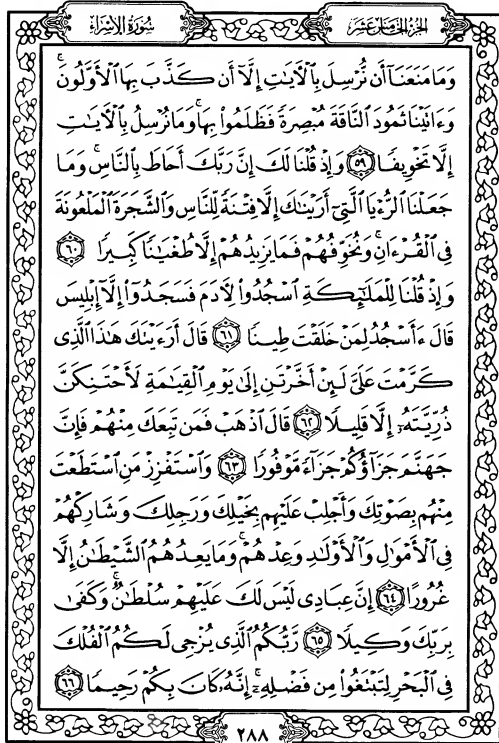 سُورَةُ الإِسْرَاءِ
الجُزْءُ الخَامِسَ عَشَرَ
وَمَا مَنَعَنَآ أَن نُّرْسِلَ بِٱلْأَيَٰتِ إِلَّآ أَن كَذَّبَ بِهَا ٱلْأَوَّلُونَ ۚ
وَءَاتَيْنَا ثَمُودَ ٱلنَّاقَةَ مُبْصِرَةً فَظَلَمُوا۟ بِهَا ۚ وَمَا نُرْسِلُ بِٱلْأَيَٰتِ
إِلَّا تَخْوِيفًا ٥٩ وَإِذْ قُلْنَا لَكَ إِنَّ رَبَّكَ أَحَاطَ بِٱلنَّاسِ ۚ وَمَا
جَعَلْنَا ٱلرُّءْيَا ٱلَّتِىٓ أَرَيْنَٰكَ إِلَّا فِتْنَةً لِّلنَّاسِ وَٱلشَّجَرَةَ ٱلْمَلْعُونَةَ
فِى ٱلْقُرْءَانِ ۚ وَنُخَوِّفُهُمْ فَمَا يَزِيدُهُمْ إِلَّا طُغْيَٰنًا كَبِيرًا ٦٠
وَإِذْ قُلْنَا لِلْمَلَٰٓئِكَةِ ٱسْجُدُوا۟ لِأَدَمَ فَسَجَدُوٓا۟ إِلَّآ إِبْلِيسَ
قَالَ ءَأَسْجُدُ لِمَنْ خَلَقْتَ طِينًا ٦١ قَالَ أَرَءَيْتَكَ هَٰذَا ٱلَّذِى
كَرَّمْتَ عَلَىَّ لَئِنْ أَخَّرْتَنِ إِلَىٰ يَوْمِ ٱلْقِيَٰمَةِ لَأَحْتَنِكَنَّ
ذُرِّيَّتَهُۥٓ إِلَّا قَلِيلًا ٦٢ قَالَ ٱذْهَبْ فَمَن تَبِعَكَ مِنْهُمْ فَإِنَّ
جَهَنَّمَ جَزَآؤُكُمْ جَزَآءً مَّوْفُورًا ٦٣ وَٱسْتَفْزِزْ مَنِ ٱسْتَطَعْتَ
مِنْهُم بِصَوْتِكَ وَأَجْلِبْ عَلَيْهِم بِخَيْلِكَ وَرَجِلِكَ وَشَارِكْهُمْ
فِى ٱلْأَمْوَٰلِ وَٱلْأَوْلَٰدِ وَعِدْهُمْ ۚ وَمَا يَعِدُهُمُ ٱلشَّيْطَٰنُ إِلَّا
غُرُورًا ٦٤ إِنَّ عِبَادِى لَيْسَ لَكَ عَلَيْهِمْ سُلْطَٰنٌ ۚ وَكَفَىٰ
بِرَبِّكَ وَكِيلًا ٦٥ رَّبُّكُمُ ٱلَّذِى يُزْجِى لَكُمُ ٱلْفُلْكَ
فِى ٱلْبَحْرِ لِتَبْتَغُوا۟ مِن فَضْلِهِۦٓ ۚ إِنَّهُۥ كَانَ بِكُمْ رَحِيمًا ٦٦
٢٨٨